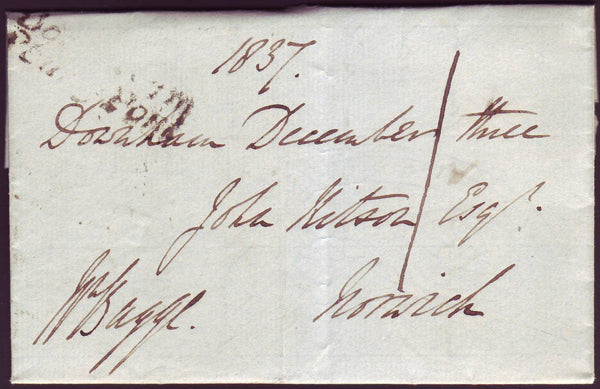 1837.
Downham December three
John Kitson Esqr.
Norwich
Wm Bagge.